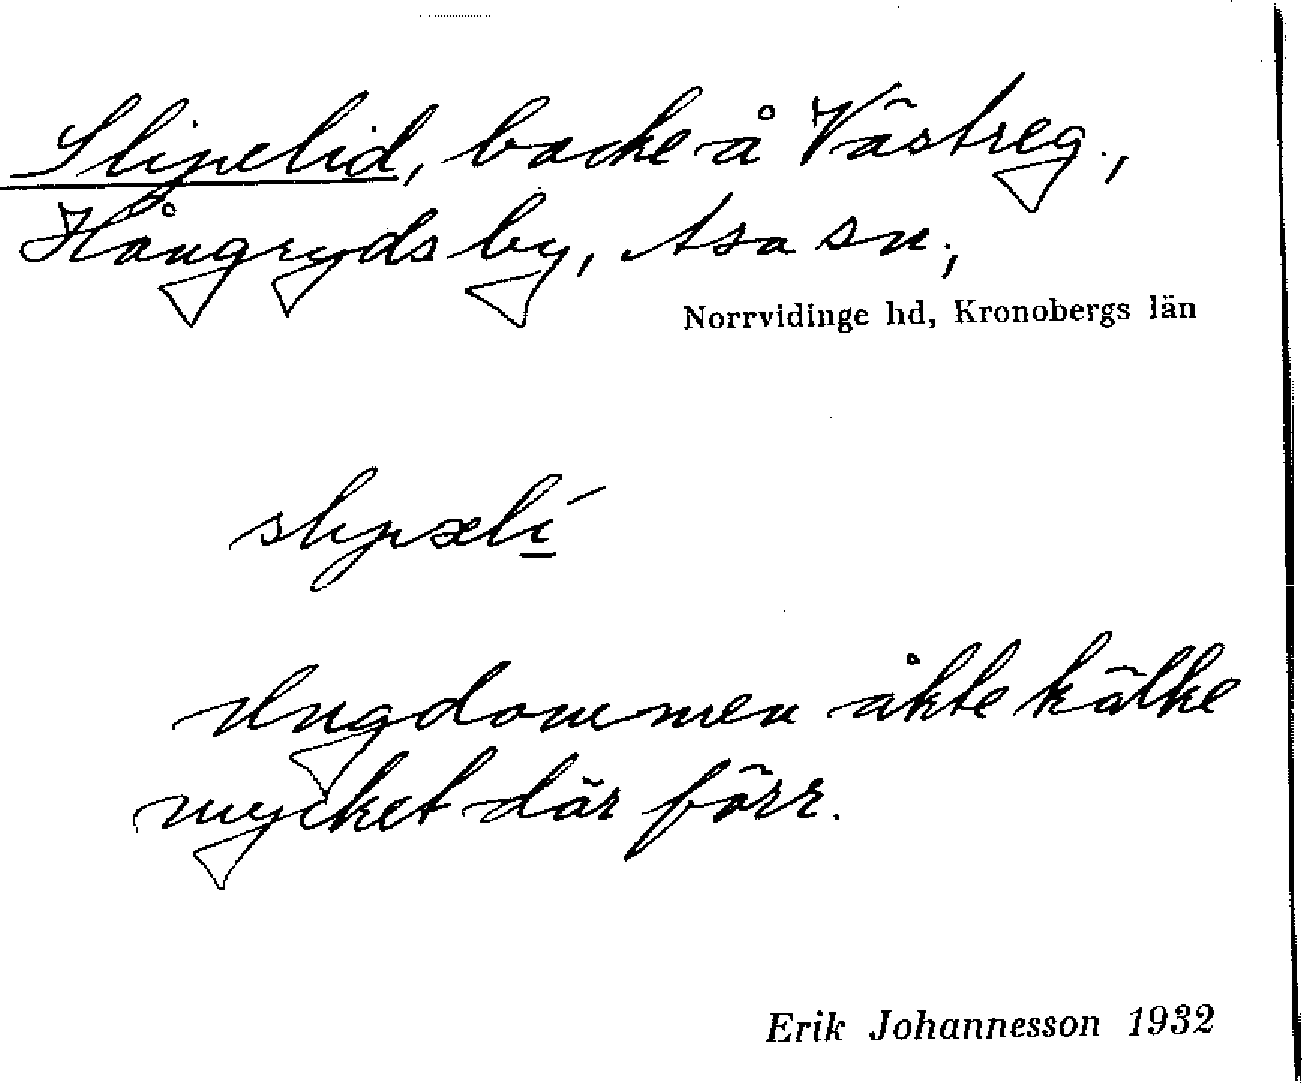 Slipelid, backe å Västreg.,
Hångryds by, Asa sn.,
Norrvidinge hd, Kronobergs län
slipælí
Ungdommen åkte kälke
mycket där förr.
Erik Johannesson 1932